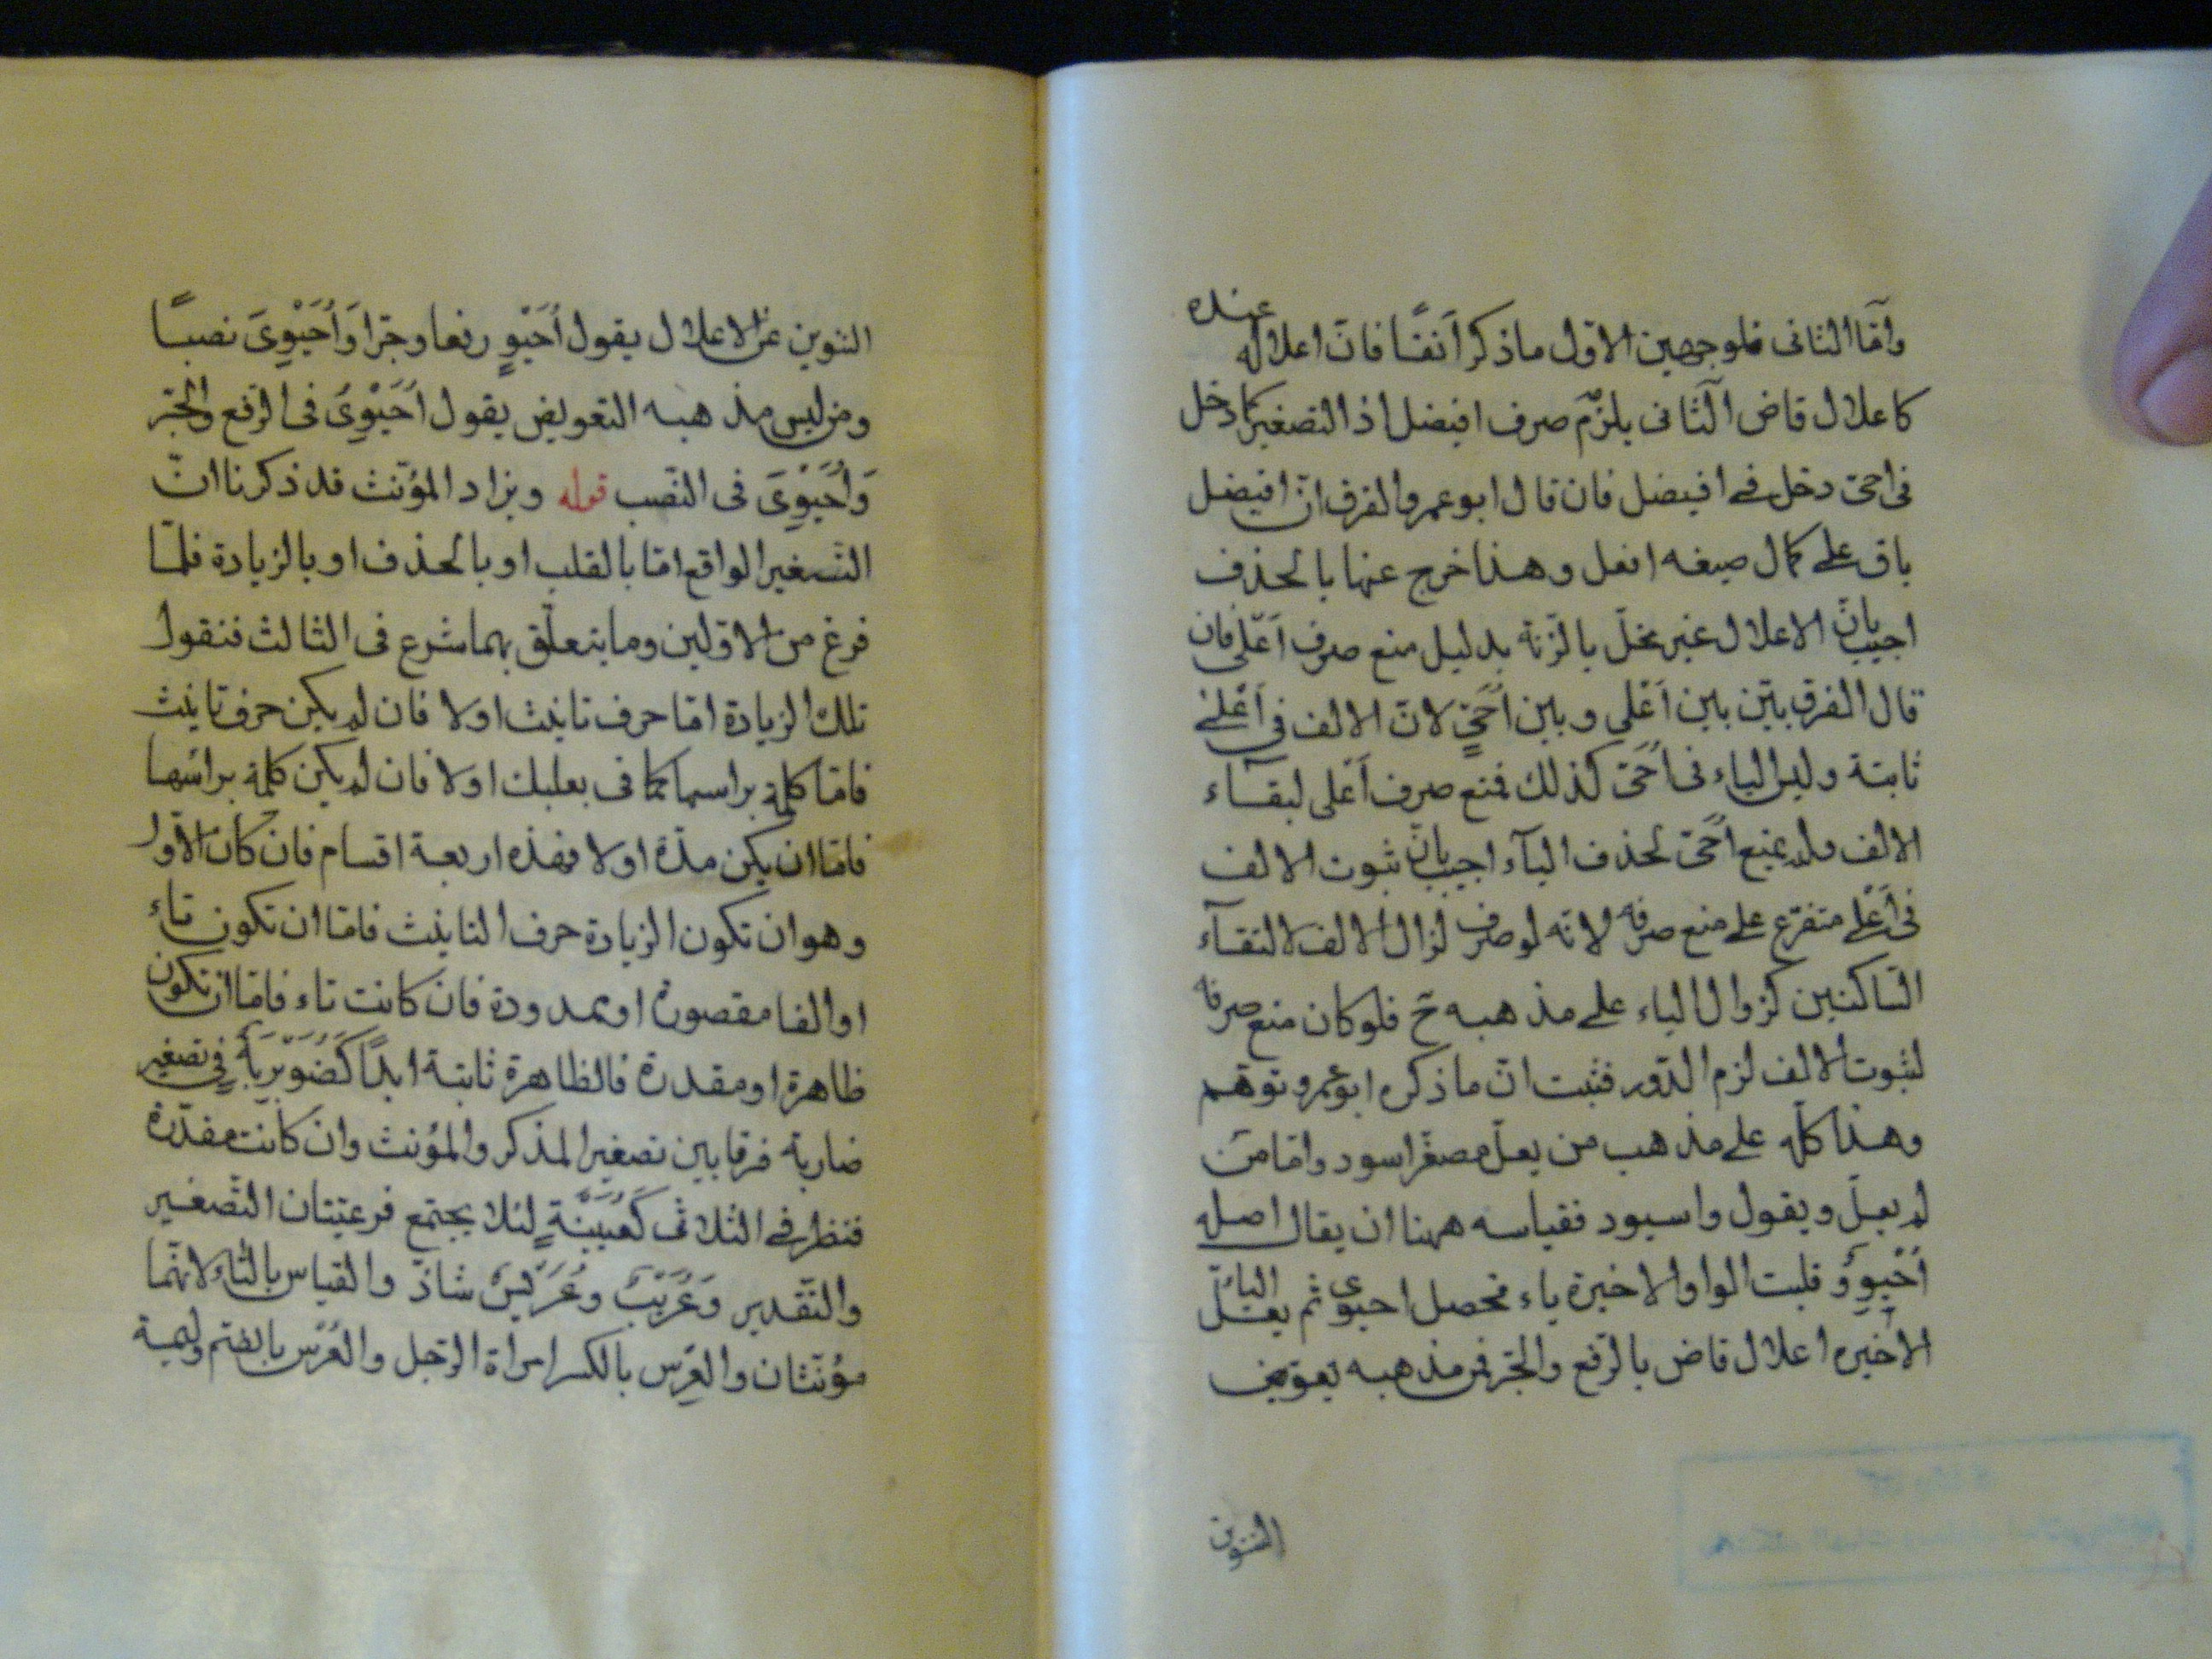 وامّا الثانى فلوجهين الاوّل ما ذكر آنفًا فانّ اعلاله عنده
كاعلال قاض الثانى يلزم صرف افيضل اذ التصغير كما دخل
فى احىّ دخل فى افيضل فان قال ابو عمرو الفرق انّ افيضل
باق على كمال صيغه افعل وهذا خرج عنها بالحذف
اجيب بانّ الاعلال غير مخلّ بالزنة بدليل منع صرف اَعْلى فان
قال الفرق بيّن بين اَعْلى وبين اُحَيٍّ لانّ الالف فى اَعْلى
ثابتة وليس الياء فى اُحَىّ كذلك فمنع صرف اَعْلى لبقاء
الالف ولم يمنع اُحَىّ لحذف الياء اجيب بانّ ثبوت الالف
فى اَعْلى متفرّع على منع صرفه لانّه لو صرف لزال الالف لالتقاء
الساكنين كزوال الياء على مذهبه ح فلو كان منع صرفه
لثبوت الالف لزم الدّور فثبت انّ ما ذكره ابو عمرو توهّم
وهذا كلّه على مذهب من يعلّ مصغّر اسود وامّا من
لم يعلّ ويقول واسيود فقياسه ههنا ان يقال اصله
اُحَيْوِوُ قلبت الواو الاخيرة ياء فحصل احيوى ثم يعلّ الياء
الاخيره اعلال قاض بالرّفع والجرّ فمن مذهبه تعويض
التنوين
التنوين عن الاعلال يقول اُحَيْوٍ رفعا وجرّا وَاُحَيْوِىَ نصبًا
ومن ليس مذهبه التعويض يقول اُحَيْوِىْ فى الرفع والجرّ
وَاُحَيْوِىَ فى النّصب قوله ويزاد المؤنّث قد ذكرنا انّ
التّصغير الواقع امّا بالقلب او بالحذف او بالزيادة فلمّا
فرغ من الاوّلين وما يتعلّق بهما شرع فى الثالث فنقول
تلك الزيادة امّا حرف تانيث اولا فان لم يكن حرف تانيث
فامّا كلمة براسها كما فى بعلبك اولا فان لم يكن كلمة برائسها
فامّا ان يكن مدّة اولا فهذه اربعة اقسام فان كان الاوّل
وهو ان تكون الزيادة حرف التانيث فامّا ان تكون تاء
او الفا مقصورة او ممدودة فان كانت تاء فامّا ان تكون
ظاهرة او مقدرة فالظاهرة ثابتة ابدًا كَضُوَيْرِبَة فى تصغير
ضاربة فرقا بين تصغير المذكر والمؤنث وان كانت مقدّرة
فتظهر فى الثلاثى كَعُيَيْنَةٍ لئلا يجتمع فرعيّتان التّصغير
والتّقدير وَعُرَيْبٌ وعُرَيْسٌ شاذّ والقياس بالتاء لانّهما
مؤنّثان والعِرْس بالكسر امراة الرّجل والعُرْس بالضّم وليمة